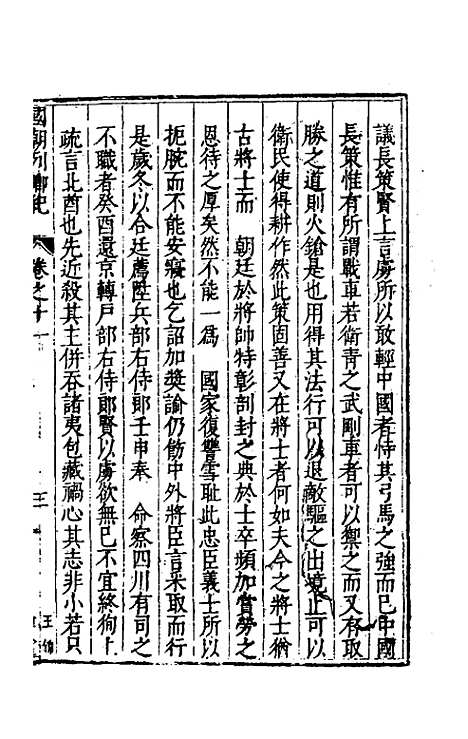 議長策賢上言虜所以敢輕中國者恃其弓馬之強而已中國
長策惟有所謂戰車若衛青之武剛車者可以禦之而又有取
勝之道則火鎗是也用得其法行可以退敵驅之出境止可以
衛民使得耕作然此策固善又在將士者何如夫今之將士猶
古將士而　朝廷於將帥特彰剖封之典於士卒頻加賞勞之
恩待之厚矣然不能一爲　國家復讐雪耻此忠臣義士所以
扼腕而不能安寢也乞詔加奬諭仍飭中外將臣言采取而行
是歲冬以合廷薦陞兵部右侍郎壬申奉　命察四川有司之
不職者癸酉還京轉戸部右侍郎賢以虜欲無已不宜終狥上
疏言北酋也先近殺其主併吞諸夷包藏禍心其志非小若只
國朝列卿紀　卷之十一